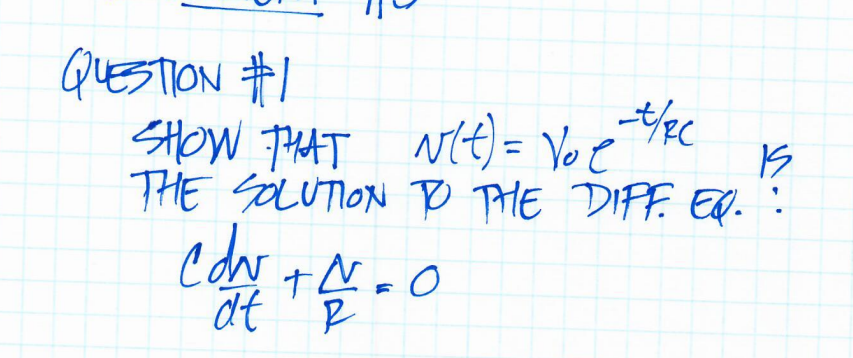 QUESTION #1
SHOW THAT v(t) = V₀ e^(-t/RC) IS
THE SOLUTION TO THE DIFF. EQ. :
C dv/dt + v/R = 0